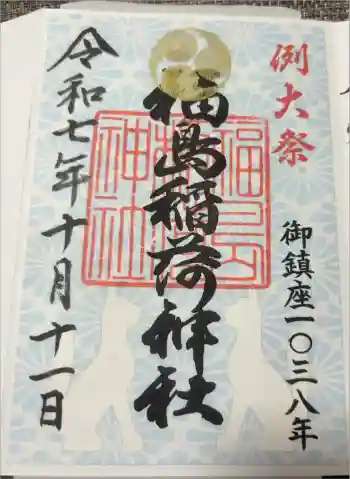 例大祭
御鎮座一〇三八年
福島稲荷神社
令和七年十月十一日